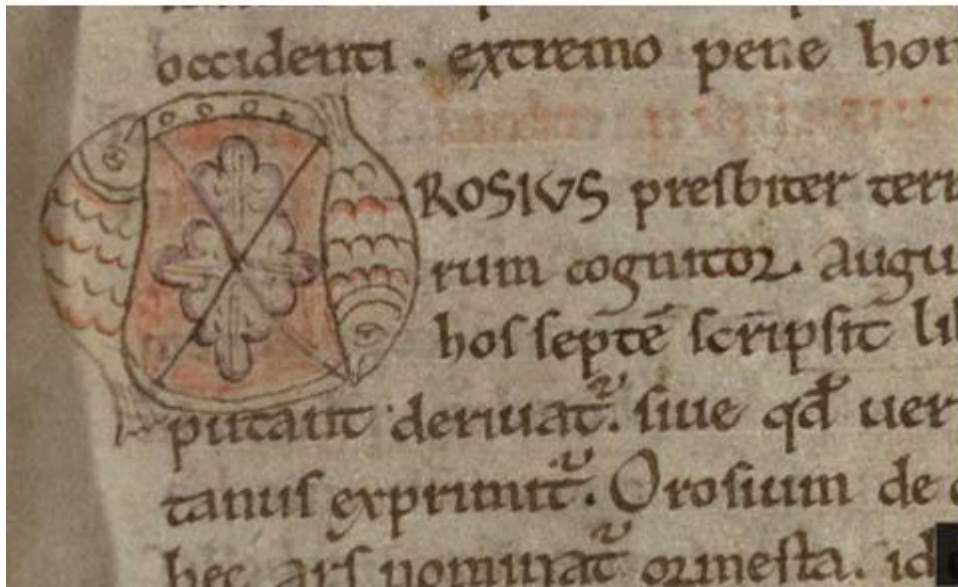 occidenti . extremo pene hom
OROSIVS presbiter terr
rum cognitor. augu
hos septē scripsit lib
putant deriuat᷑. siue qđ uer
tanus exprimit᷑. Orosium de
hec ars nominat᷑ ormesta. id